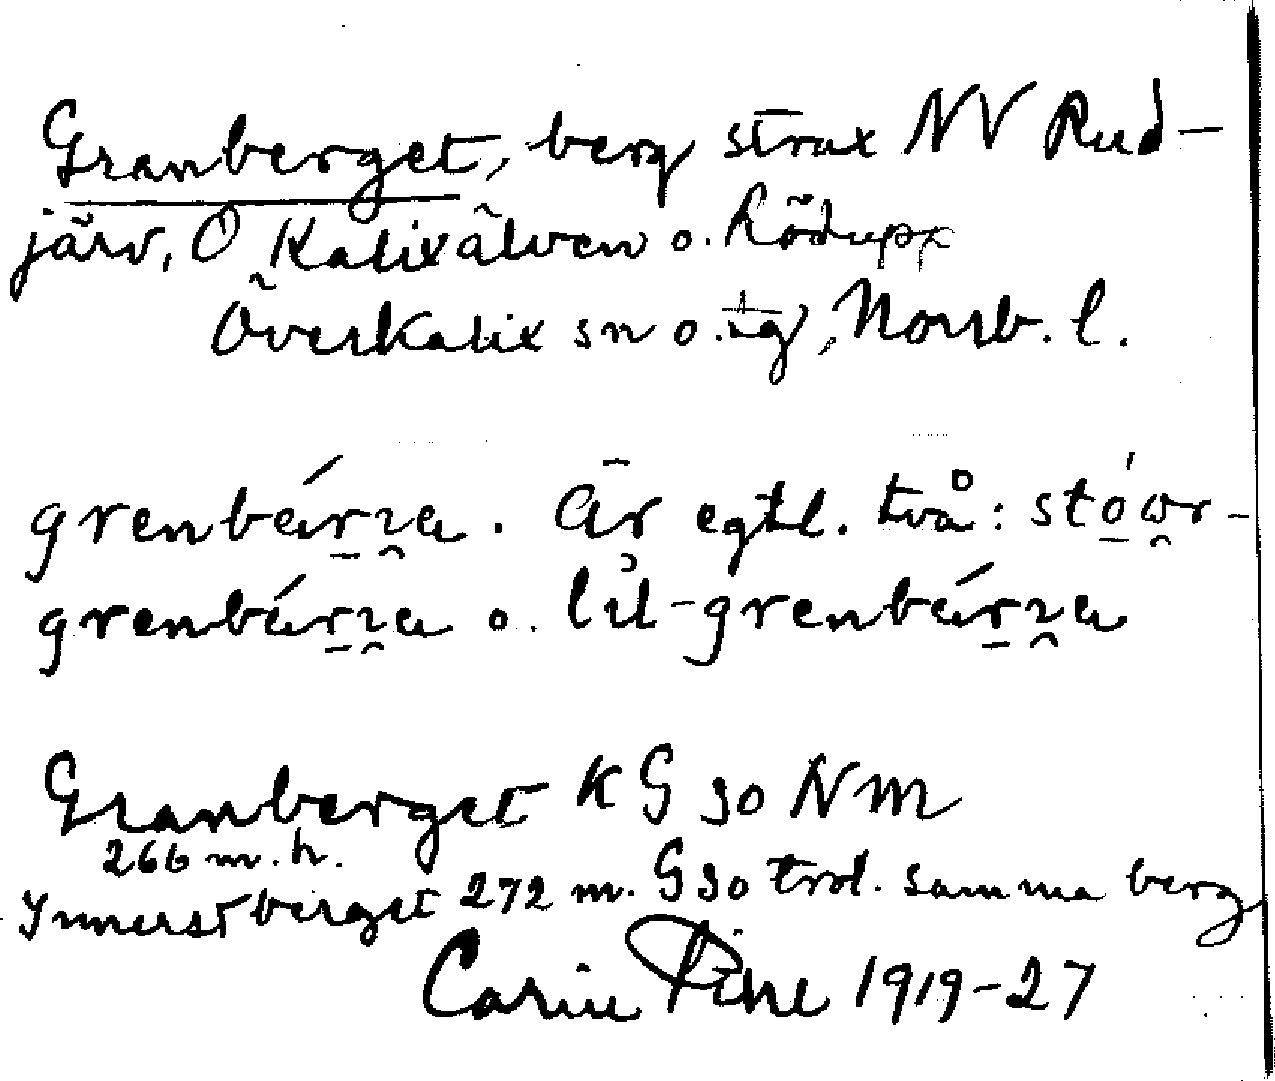 Granberget, berg strax NV Rud-
järv, O Kalixälven o. Rödupp
Överkalix sn o. tg, Norrb. l.
grenbárɿa. Är egtl. två: stówr-
grenbárɿa o. lıl-grenbárɿa
Granberget KG 30 NM
266 m.h.
Innerstberget 272 m. G 30 trol. samma berg
Carin Pihl 1919-27